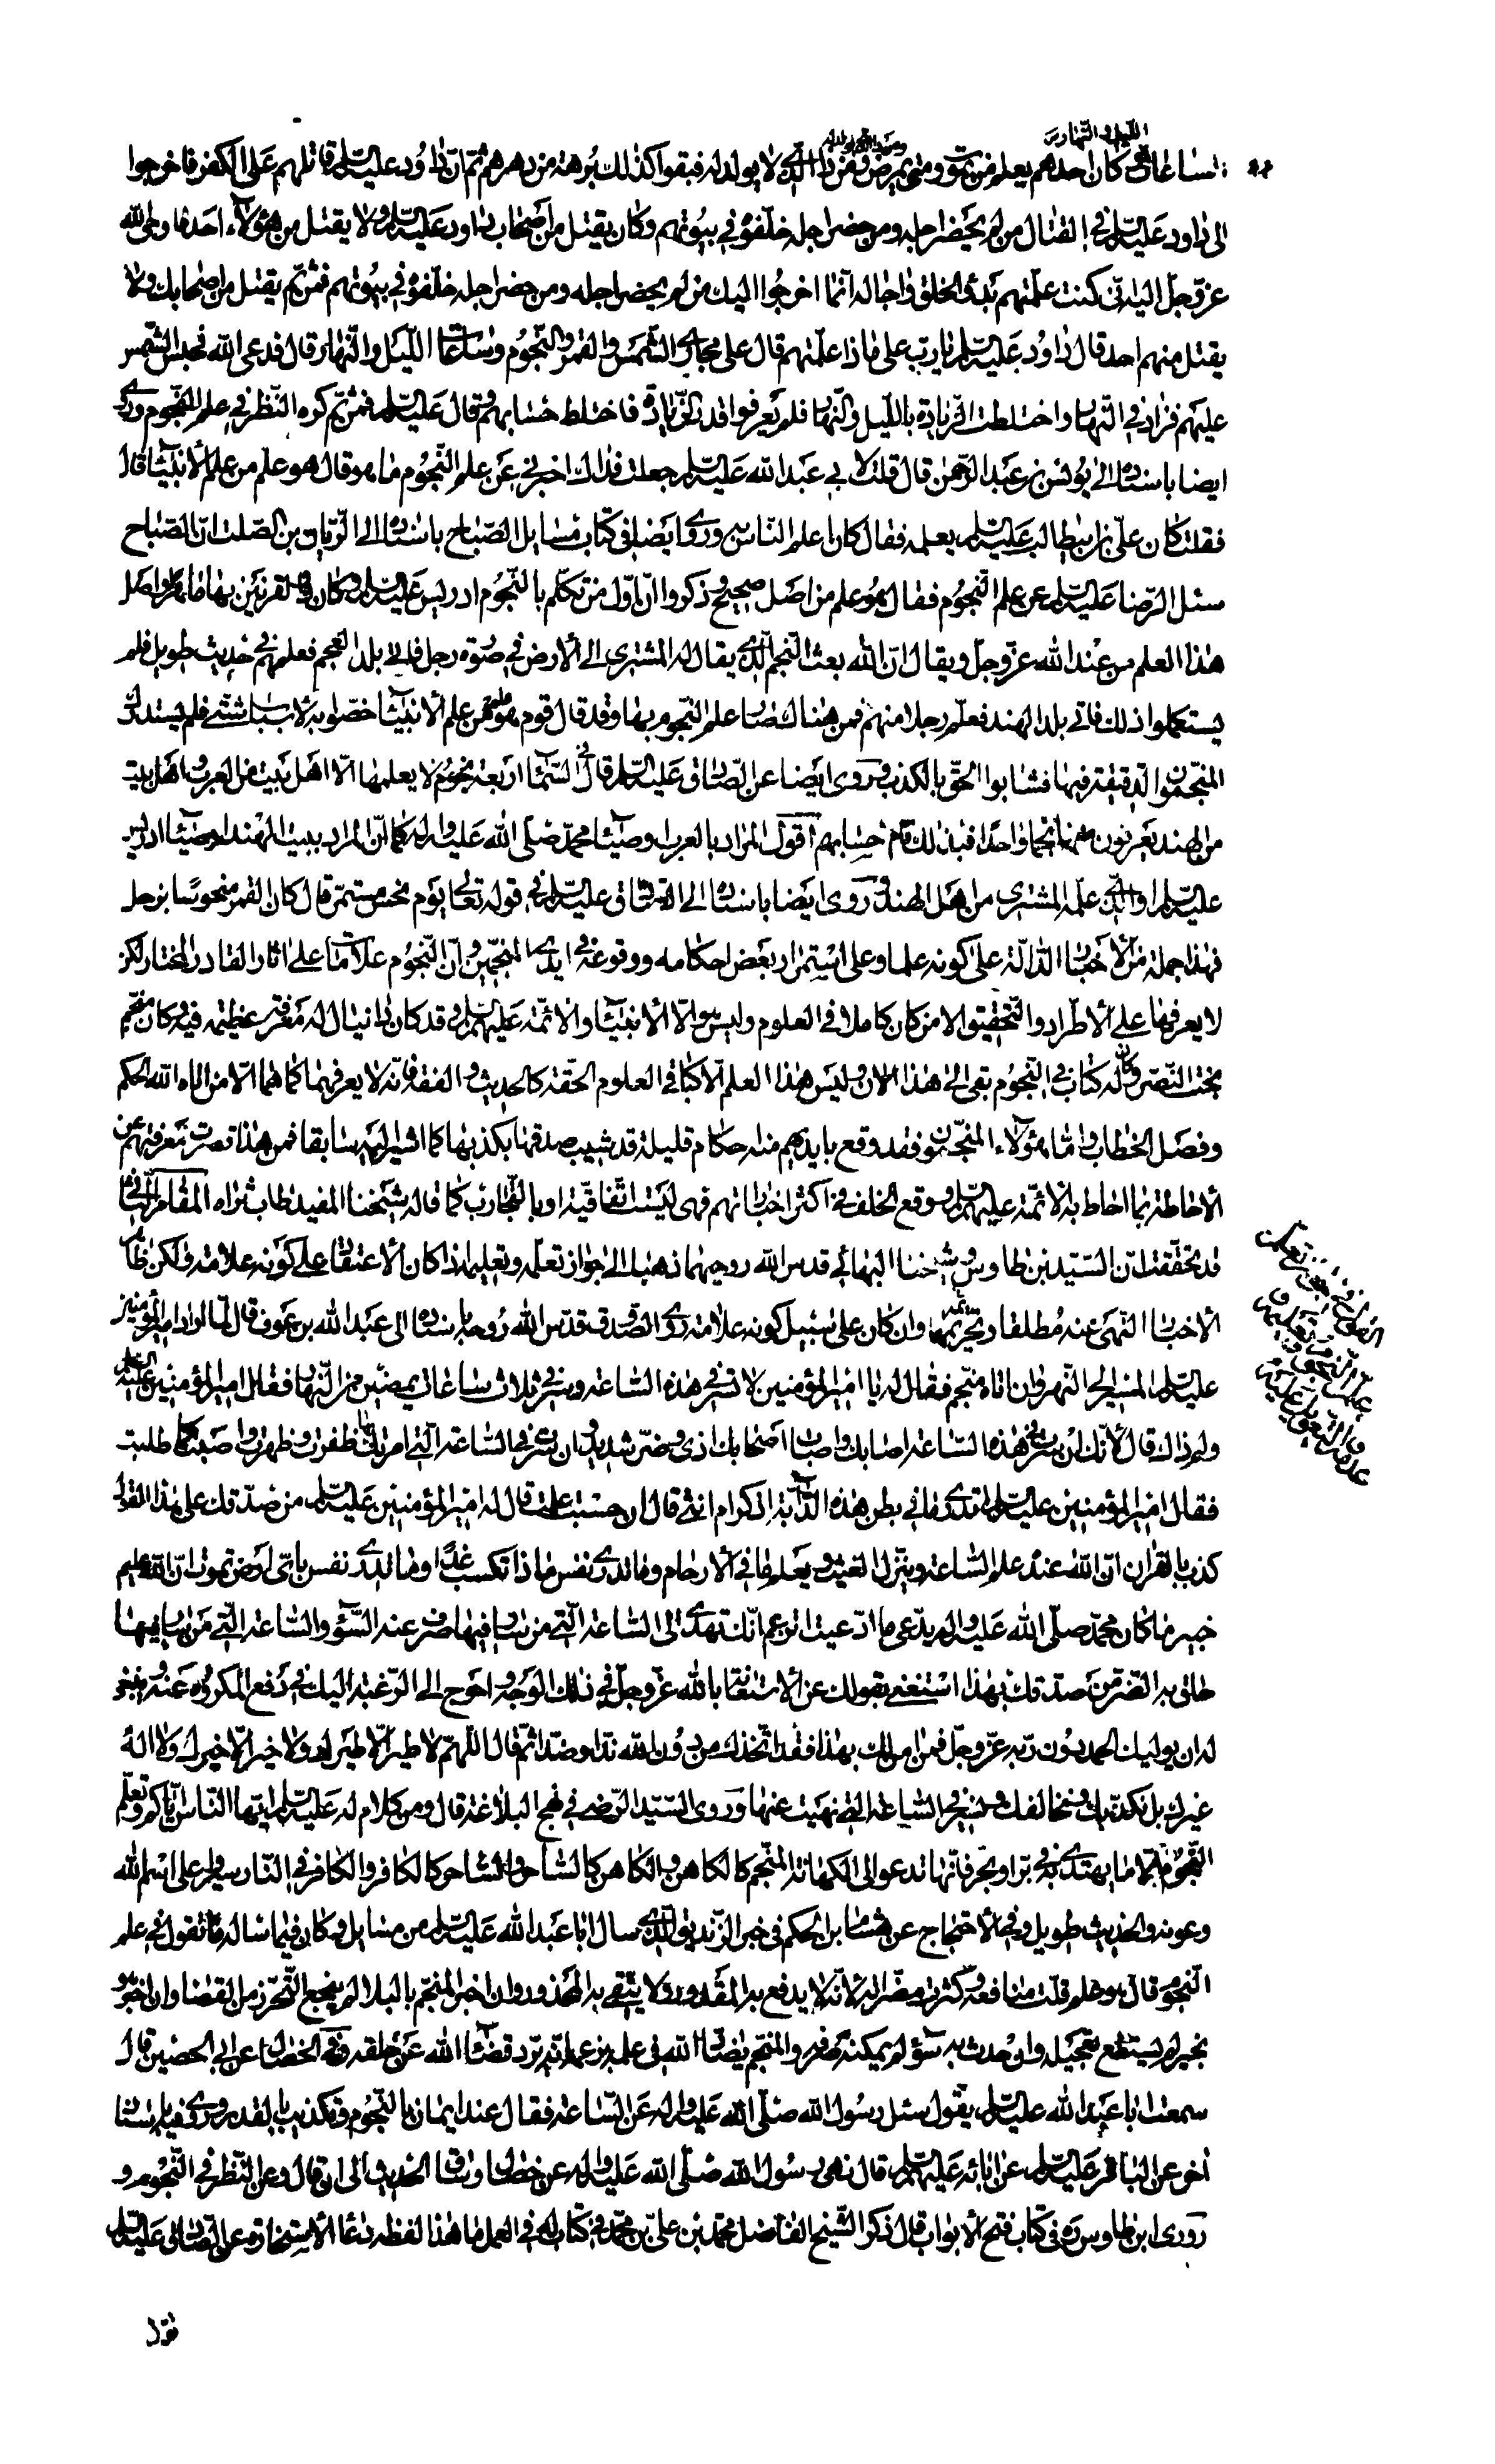 الليل والنهار
وساعاته كان احدهم يعلم متى يموت ومتى يمرض ومن ذا الذي لا يولد له فبقوا كذلك برهة من دهرهم ثم ان داود عليه السلام قاتلهم على الكفر فاخرجوا
الى داود عليه السلام في القتال من لم يحضر اجله ومن حضر اجله خلفوه في بيوتهم وكان يقتل من اصحاب داود عليه السلام ولا يقتل من هؤلاء احد فاوحى الله
عز وجل اليه اني كنت علمتهم بدء الخلق واجاله انما اخرجوا اليك من لم يحضر اجله ومن حضر اجله خلفوه في بيوتهم فمن ثم يقتل من اصحابك ولا
يقتل منهم احد قال داود عليه السلام يا رب على ماذا علمتهم قال على مجاري الشمس والقمر والنجوم وساعات الليل والنهار قال فدعى الله فحبس الشمس
عليهم فزاد في النهار واختلطت الزيادة بالليل والنهار فلم يعرفوا قدر الزيادة فاختلط حسابهم وقال عليه السلام فمن ثم كره النظر في علم النجوم وروى
ايضا باسناده الى يونس بن عبد الرحمن قال قلت لابي عبد الله عليه السلام جعلت فداك اخبرني عن علم النجوم ما هو قال هو علم من علم الانبياء قال
فقلت كان علي بن ابيطالب عليه السلام يعلمه فقال كان اعلم الناس به وروى ايضا في كتاب مسايل الصباح باسناده الى الريان بن الصلت ان الصباح
سئل الرضا عليه السلام عن علم النجوم فقال هو علم من اصل صحيح وذكروا ان اول من تكلم بالنجوم ادريس عليه السلام وكان ذو القرنين بها ماهرا واصل
هذا العلم من عند الله عز وجل ويقال ان الله بعث النجم الذي يقال له المشتري الى الارض في صورة رجل فاتى بلد العجم فعلمهم في حديث طويل فلم
يستكملوا ذلك فاتى بلد الهند فعلم رجلا منهم فمن هناك صار علم النجوم بها وقد قال قوم هو علم من علم الانبياء خصوا به لاسباب شتى فلم يستدرك
المنجمون الدقيقة فيها فشابوا الحق بالكذب وروى ايضا عن الصادق عليه السلام قال في السماء اربعة نجوم لا يعلمها الا اهل بيت من العرب واهل بيت
من الهند يعرفون منها نجما واحدا فبذلك قام حسابهم اقول المراد بالعرب اوصياء محمد صلى الله عليه واله كما ان المراد ببيت الهند اوصياء ادريس
عليه السلام او الذي علمه المشتري من اهل الهند وروى ايضا باسناده الى الصادق عليه السلام في قوله تعالى يوم نحس مستمر قال كان القمر منحوسا بزحل
فهذا جملة من الاخبار الدالة على كونه علما وعلى استمرار بعض احكامه ووقوعه في ايدي المنجمين وان النجوم علامات على اثار القادر المختار لكن
لا يعرفها على الاطراد والتحقيق الا من كان كاملا في العلوم وليس هو الا الانبياء والائمة عليهم السلام وقد كان دانيال له معرفة عظيمة فيه وكان منجم
بخت النصر وكان له كتاب في النجوم بقي الى هذا الان وليس هذا العلم الا كباقي العلوم الحقة كالحديث والفقه فانه لا يعرفهما كما هما الا من اتاه الله الحكم
وفصل الخطاب واما هؤلاء المنجمون فقد وقع بايديهم منه احكام قليلة قد شيب صدقها بكذبها كما اشير اليه سابقا فمن هذا قصرت معرفتهم عن
الاحاطة بما احاط به الائمة عليهم السلام ووقع الخلف في اكثر اخباراتهم فهي ليست اتفاقية او بالتجارب كما قاله شيخنا المفيد طاب ثراه المقام الثاني
قد تحققت ان السيد بن طاوس وشيخنا البهائي قدس الله روحيهما ذهبا الى جواز تعلمه وتعليمه اذا كان الاعتقاد على كونه علامة ولكن ظاهر
الاخبار النهي عنه مطلقا وتحريمه وان كان على سبيل كونه علامة روى الصدوق قدس الله روحه باسناده الى عبد الله بن عوف قال لما اراد امير المؤمنين
عليه السلام المسير الى النهروان اتاه منجم فقال له يا امير المؤمنين لا تسر في هذه الساعة وسر في ثلاث ساعات يمضين من النهار فقال امير المؤمنين عليه السلام
ولم ذاك قال لانك ان سرت في هذه الساعة اصابك واصاب اصحابك اذى وضر شديد وان سرت في الساعة التي امرتك بها ظفرت وظهرت واصبت كلما طلبت
فقال امير المؤمنين عليه السلام تدري ما في بطن هذه الدابة اذكر ام انثى قال ان حسبت علمت قال له امير المؤمنين عليه السلام من صدقك على هذا القول
كذب بالقران ان الله عنده علم الساعة وينزل الغيث ويعلم ما في الارحام وما تدري نفس ماذا تكسب غدا وما تدري نفس باي ارض تموت ان الله عليم
خبير ما كان محمد صلى الله عليه واله يدعي ما ادعيت اتزعم انك تهدي الى الساعة التي من سار فيها صرف عنه السوء والساعة التي من سار فيها
حاق به الضر من صدقك بهذا استغنى بقولك عن الاستعانة بالله عز وجل في ذلك الوجه واحوج الى الرغبة اليك في دفع المكروه عنه وينبغي
له ان يوليك الحمد دون ربه عز وجل فمن امن لك بهذا فقد اتخذك من دون الله ندا وضدا ثم قال اللهم لا طير الا طيرك ولا خير الا خيرك ولا اله
غيرك بل نكذبك ونخالفك ونسير في الساعة التي نهيت عنها وروى السيد الرضي في نهج البلاغة قال ومن كلام له عليه السلام ايها الناس اياكم وتعلم
النجوم الا ما يهتدى به في بر او بحر فانها تدعو الى الكهانة المنجم كالكاهن والكاهن كالساحر والساحر كالكافر والكافر في النار سيروا على اسم الله
وعونه والحديث طويل وفي الاحتجاج عن هشام بن الحكم في خبر الزنديق الذي سال ابا عبد الله عليه السلام من مسايل وكان فيما ساله ما تقول في علم
النجوم قال هو علم قلت منافعه وكثرت مضراته لانه لا يدفع به المقدور ولا يتقى به المحذور وان اخبر المنجم بالبلاء لم ينجه التحرز من القضاء وان اخبر هو
بخير لم يستطع تعجيله وان حدث به سوء لم يمكنه صرفه والمنجم يضاد الله في علمه بزعمه انه يرد قضاء الله عن خلقه وفي الخصال عن ابي الحصين قال
سمعت ابا عبد الله عليه السلام يقول سئل رسول الله صلى الله عليه واله عن الساعة فقال عند ايمان بالنجوم وتكذيب بالقدر وروى فيه باسناد
اخر عن الباقر عليه السلام عن ابائه عليهم السلام قال نهى رسول الله صلى الله عليه واله عن خصال وساق الحديث الى ان قال وعن النظر في النجوم و
روى ابن طاوس ره في كتاب فتح الابواب قال ذكر الشيخ الفاضل محمد بن علي بن محمد في كتاب له في العمل ما هذا لفظه دعاء الاستخارة عن الصادق عليه السلام